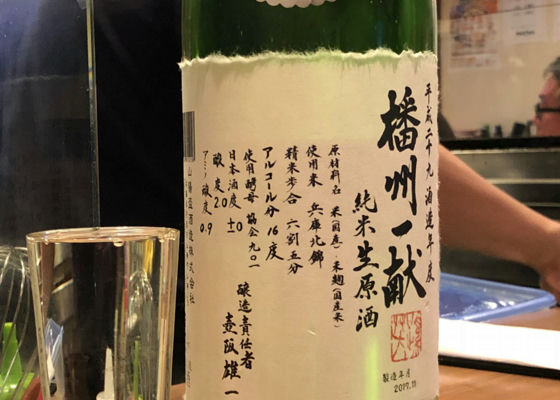 平成二十九酒造年度
播州一献
純米生原酒
原材料名 米(国産)・米麹(国産米)
使用米 兵庫北錦
精米歩合 六割五分
アルコール分 16度
使用酵母 協会九〇一
日本酒度 ±0
酸度 2.0
アミノ酸度 0.9
醸造責任者
壺阪雄一
山陽盃酒造株式会社
製造年月
2017.11